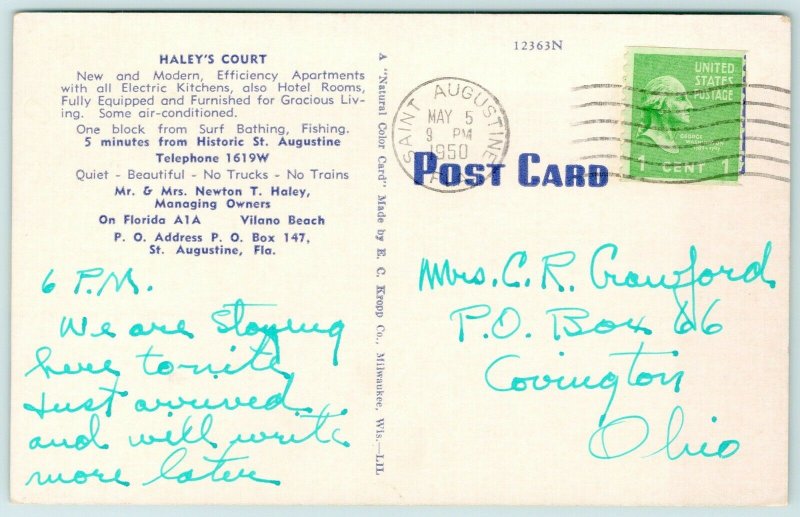 HALEY'S COURT
New and Modern, Efficiency Apartments
with all Electric Kitchens, also Hotel Rooms,
Fully Equipped and Furnished for Gracious Liv-
ing. Some air-conditioned.
One block from Surf Bathing, Fishing.
5 minutes from Historic St. Augustine
Telephone 1619W
Quiet - Beautiful - No Trucks - No Trains
Mr. & Mrs. Newton T. Haley,
Managing Owners
On Florida A1A Vilano Beach
P. O. Address P. O. Box 147,
St. Augustine, Fla.
6 P.M.
We are staying
here tonite,
Just arrived
and will write
more later
A "Natural Color Card" Made by E. C. Kropp Co., Milwaukee, Wis.—LIL
12363N
SAINT AUGUSTINE
MAY 5
9 PM
1950
UNITED
STATES
POSTAGE
GEORGE
WASHINGTON
1 CENT 1
POST CARD
Mrs. C. R. Crawford
P.O. Box 66
Covington
Ohio